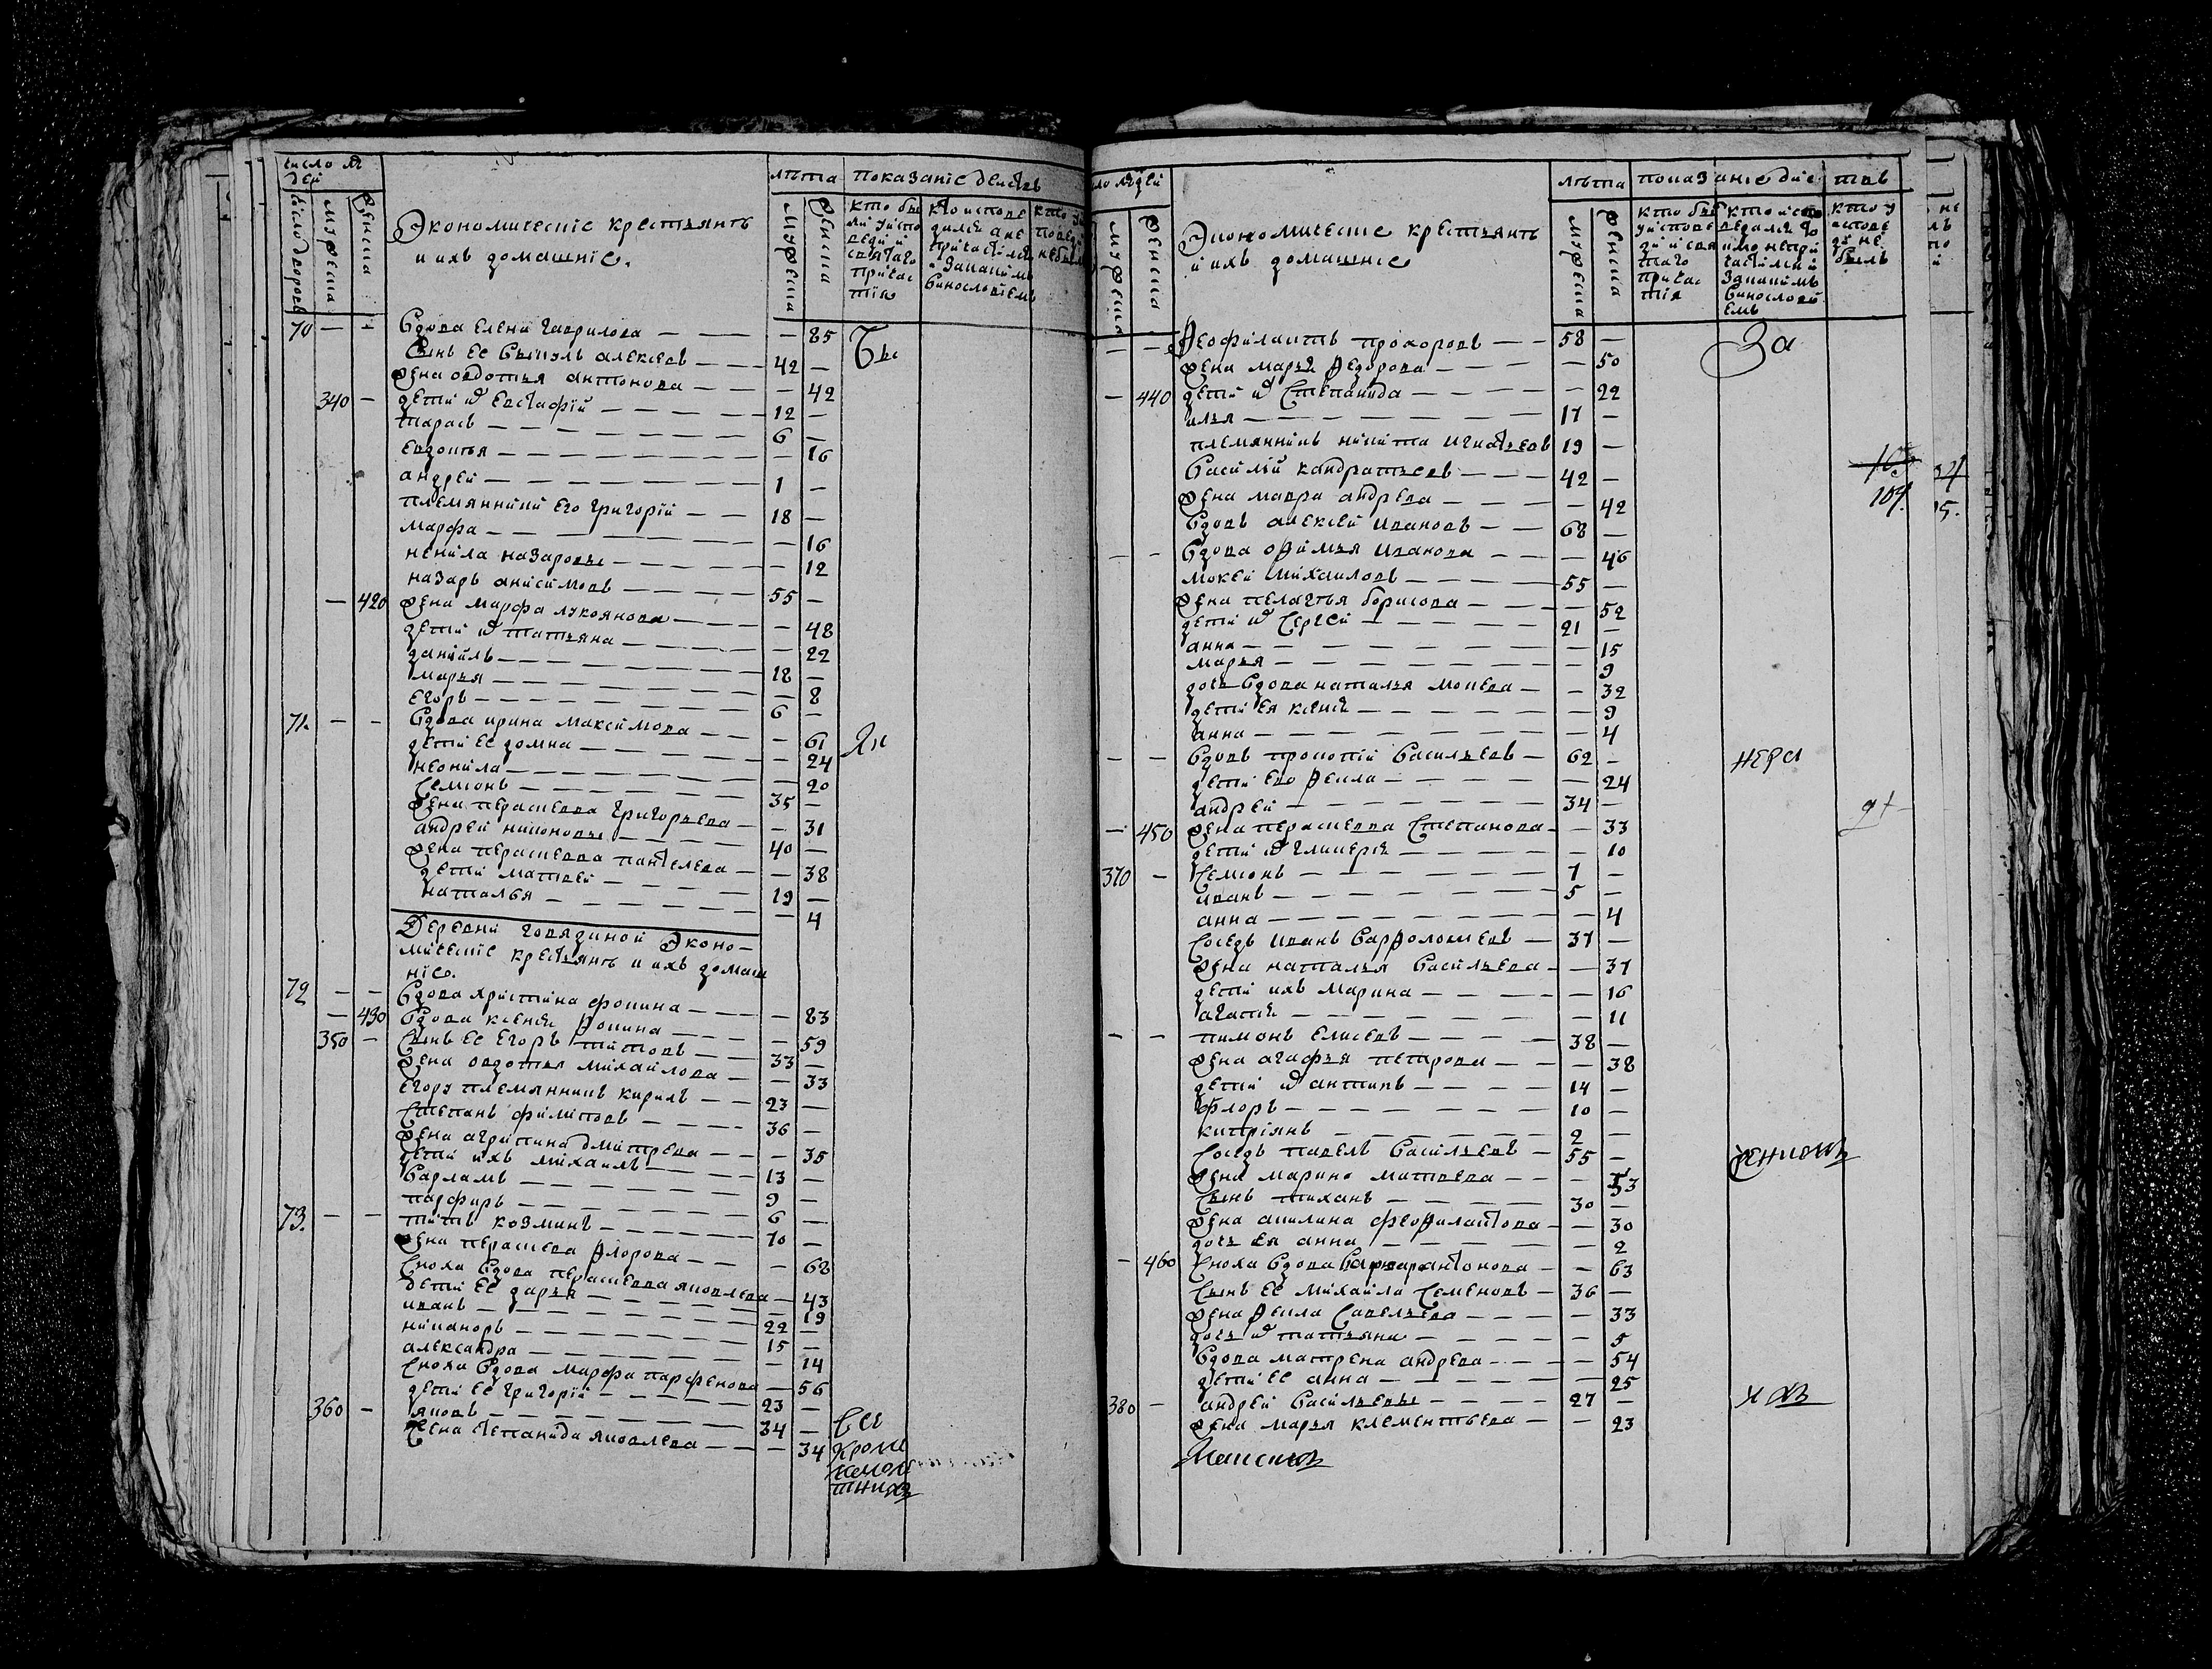 число лю
дей
число дворовъ
мужеска
женска
Экономическіе крестьянъ
и ихъ домашніе.
лѣта
показаніе действъ
мужеска
женска
кто бы
ли у испо
веди и
святаго
прича
стія
70 — —
Вдова Елена Гаврилова — — — 85 Бы
Сынъ ее Викулъ алексеевъ — — 42 —
жена овдотья антонова — — — 42
340 — дети ? Евстафій — — — 12 —
тарасъ — — — 6 —
евдотья — — — — 16
андрей — — — 1 —
племянники его Григорій — — 18 —
марфа — — — — 16
ненила назаровы — — — — 12
назаръ анисимовъ — — — 55 —
— 420 жена марфа лукоянова — — — 48
дети ? татьяна — — — — 22
даниилъ — — — 18 —
марья — — — — 8
егоръ — — — 6 —
71. — — Вдова ирина максимова — — — 61 ли
дети ее домна — — — — 24
неонила — — — — 20
Семіонъ — — — 35 —
жена Парасковья Григорьева — — 31
андрей никоновъ — — — 40 —
жена парасковья Пантелеева — — 38
дети матвей — — — 19 —
наталья — — — — 4
Деревни Говядиной Эконо-
мическіе крестьянъ и ихъ домаш
ніе.
72 — — Вдова христина фокина — — — 83
— 430 Вдова ксенія Фокина — — — 59
350 — Сынъ ее Егоръ титовъ — — 33 —
жена овдотья михайлова — — — 33
Егору племянникъ кирилъ — — 23 —
Степанъ филиповъ — — — 36 —
жена агрипина дмитрева — — — 35
дети ихъ михаилъ — — — 13 —
Варламъ — — — 9 —
парфиръ — — — 6 —
73. — — титъ козминъ — — — 70 —
жена парасковья Флорова — — — 68
Сноха вдова парасковья яковлева — — 43
дети ее дарья — — — — 19
иванъ — — — 22 —
никаноръ — — — 15 —
александра — — — — 14
Сноха вдова марфа парфенова — — 56
дети ее Григорій — — — 23 —
360 — яковъ — — — 34 — все
жена степанида яковлева — — — 34 кроме
малолѣ
тнихъ
ло людей
мужеска
женска
Экономическіе крестьянъ
и ихъ домашніе
лѣта
показаніе дйс твъ
мужеска
женска
— — Феофилактъ прохоровъ — — 58 — За
жена марья Федорова — — — 50
— 440 дети ? Степанида — — — — 22
илья — — — 17 —
племянникъ никита игнатьевъ 19 —
Василій кондратьевъ — — — 42 —
104.
жена мавра андреева — — — — 42
Вдовъ алексей ивановъ — — 68 —
— — Вдова офимья иванова — — — 46
мокей михаиловъ — — — 55 —
жена пелагья борисова — — — 52
дети ? Сергей — — — 21 —
анна — — — — 15
марья — — — — 9
дочь вдова наталья мокеева — — 32
дети ея ксенія — — — — 9
анна — — — — 4
— — Вдовъ прокопій Васильевъ — 62 — нера
дети ево Фекла — — — — 24
андрей — — — 34 —
— 450 жена парасковья Степанова — — 33
дети ? гликерія — — — — 10
370 — Семіонъ — — — 7 —
иванъ — — — 5 —
анна — — — — 4
Соседъ иванъ Варфоломеевъ — 37 —
жена наталья Васильева — — 37
дети ихъ марина — — — — 16
агафія — — — — 11
— — пимонъ Елисеевъ — — — 38 —
жена агафья петрова — — — 38
дети ? антипъ — — — 14 —
Флоръ — — — 10 —
кипріянъ — — — 2 —
Соседъ павелъ Васильевъ — 55 — женіемъ
жена марина матвеева — — — 53
Сынъ тиханъ — — — 30 —
жена акилина феофилактова — — 30
дочь ея анна — — — — 2
— 460 Сноха вдова варвара антонова — — 63
Сынъ ее михайла Семеновъ — 36 —
жена Фекла Савельева — — — 33
дочь ? татьяна — — — — 5
Вдова матрена андреева — — — 54
дети ее анна — — — — 25
380 — андрей Васильевы — — — 27 — ихъ
жена марья клементьева — — — 23